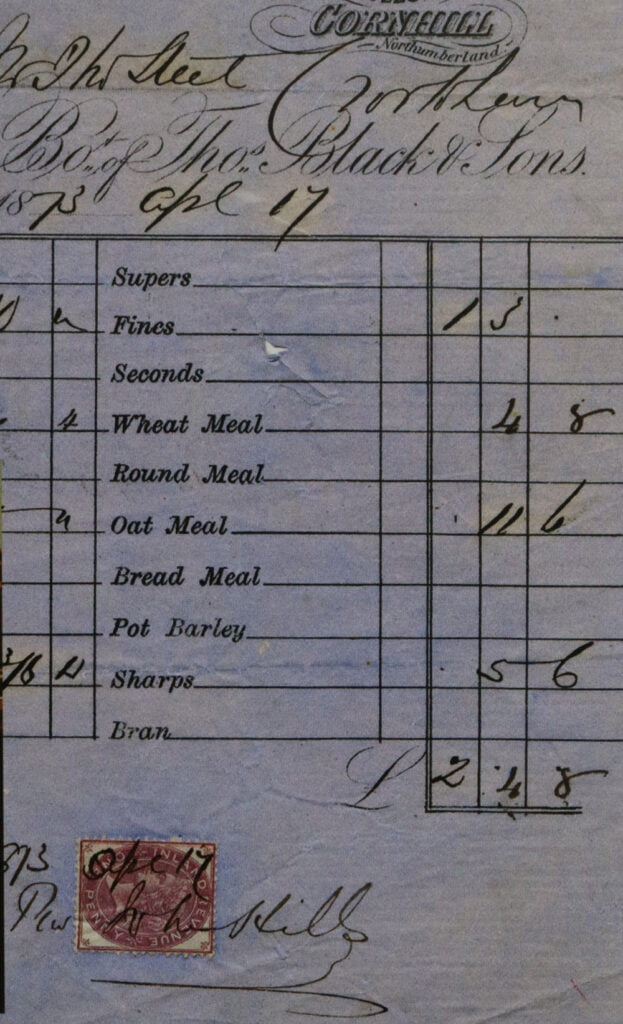 CORNHILL
Northumberland
Mr Thos Steel Crookham
Bot. of Thos. Black & Sons.
1873 Apl 17
Supers
Fines 1 3 .
Seconds
4 Wheat Meal 4 8
Round Meal
Oat Meal 11 6
Bread Meal
Pot Barley
Sharps 5 6
Bran
£ 2 4 8
873 Apl 17
INLAND REVENUE
PENNY
John Hills